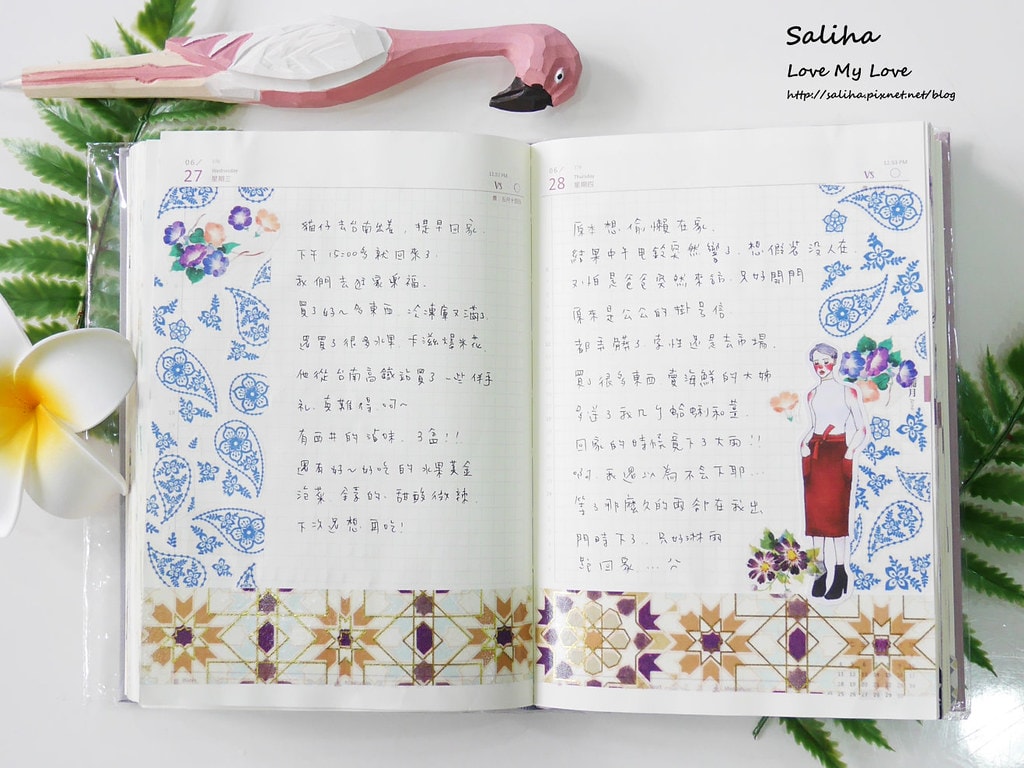 Saliha
Love My Love
http://saliha.pixnet.net/blog
06/
27
Wednesday
星期三
VS
貓仔去台南出差，提早回家
下午 15:00多就回來了.
我們去逛家樂福.
買了好~多東西，冷凍庫又滿了.
還買了很多水果.卡滋爆米花.
他從台南高鐵站買了一些伴手
礼.真難得.呵~
有西井的滷味.3盒!!
還有好~好吃的水果黃金
泡菜.的.甜酸微辣.
下次還想再吃!
06/
28
Thursday
星期四
VS
原本想偷懶在家.
結果中午門鈴突然響了.想假裝没人在
又怕是爸爸突然來訪.只好開門
原來是公公的掛号信.
都弄髒了.索性還是去市場.
買了很多東西.賣海鮮的大姊
送了我几个蛤蜊和薑.
回家的時候竟下了大雨!!
啊.我還以為不会下耶...
等了那麼久的雨卻在我出
門時下了.只好淋雨
跑回家...